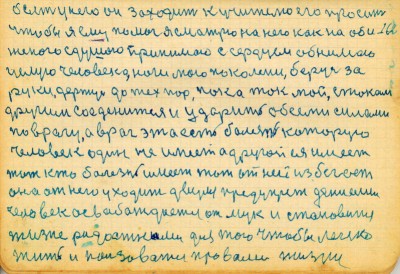 болт у него он заходит к учителю его просит
чтобы я ему помог я смотрю на него как на оби
женого с душою принимаю с сердцем обнимаю
целую человека одного моего поколения, беруся за
руки, держу до тех пор, пока ток мой, с токам
другим соединится и ударит обеими силами
по врагу, а враг это есть болезнь которую
человек один не имеит а другой ея имеет
тот кто болезнь имеет тот от ней избегает
она от него уходит двери предупреждениями
человек освабаждается от мук и становится
жизне радостным для того чтобы легко
жить и ползоватся правами жизни